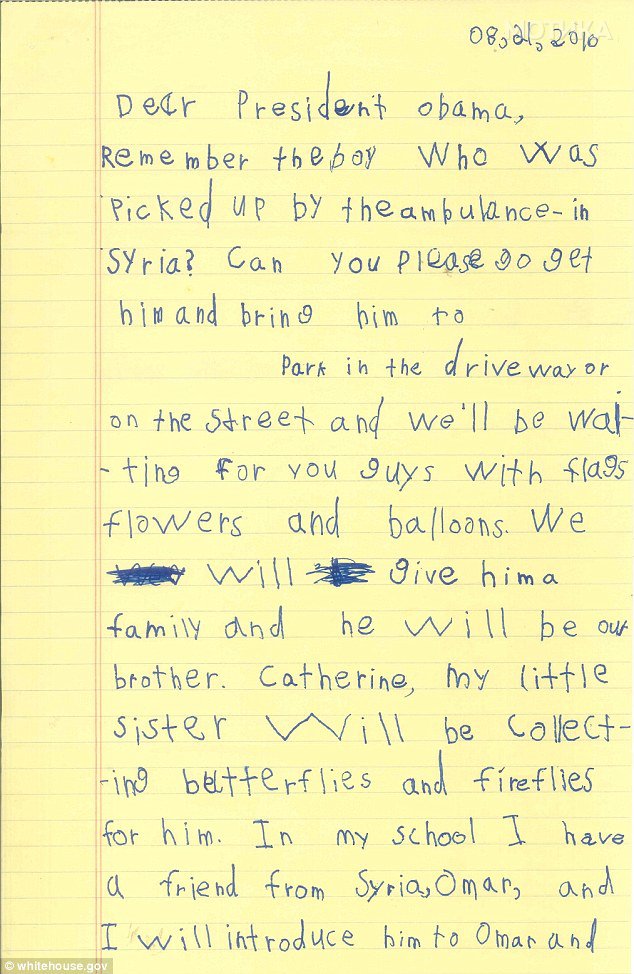 08,21,2016
Dear President obama,
Remember the boy who was
picked up by the ambulance - in
Syria? Can you please go get
him and bring him to
Park in the driveway or
on the street and we'll be wai-
-ting for you guys with flags
flowers and balloons. We
will give him a
family and he will be our
brother. Catherine, my little
sister will be collect-
-ing butterflies and fireflies
for him. In my school I have
a friend from Syria, Omar, and
I will introduce him to Omar and
© whitehouse.gov